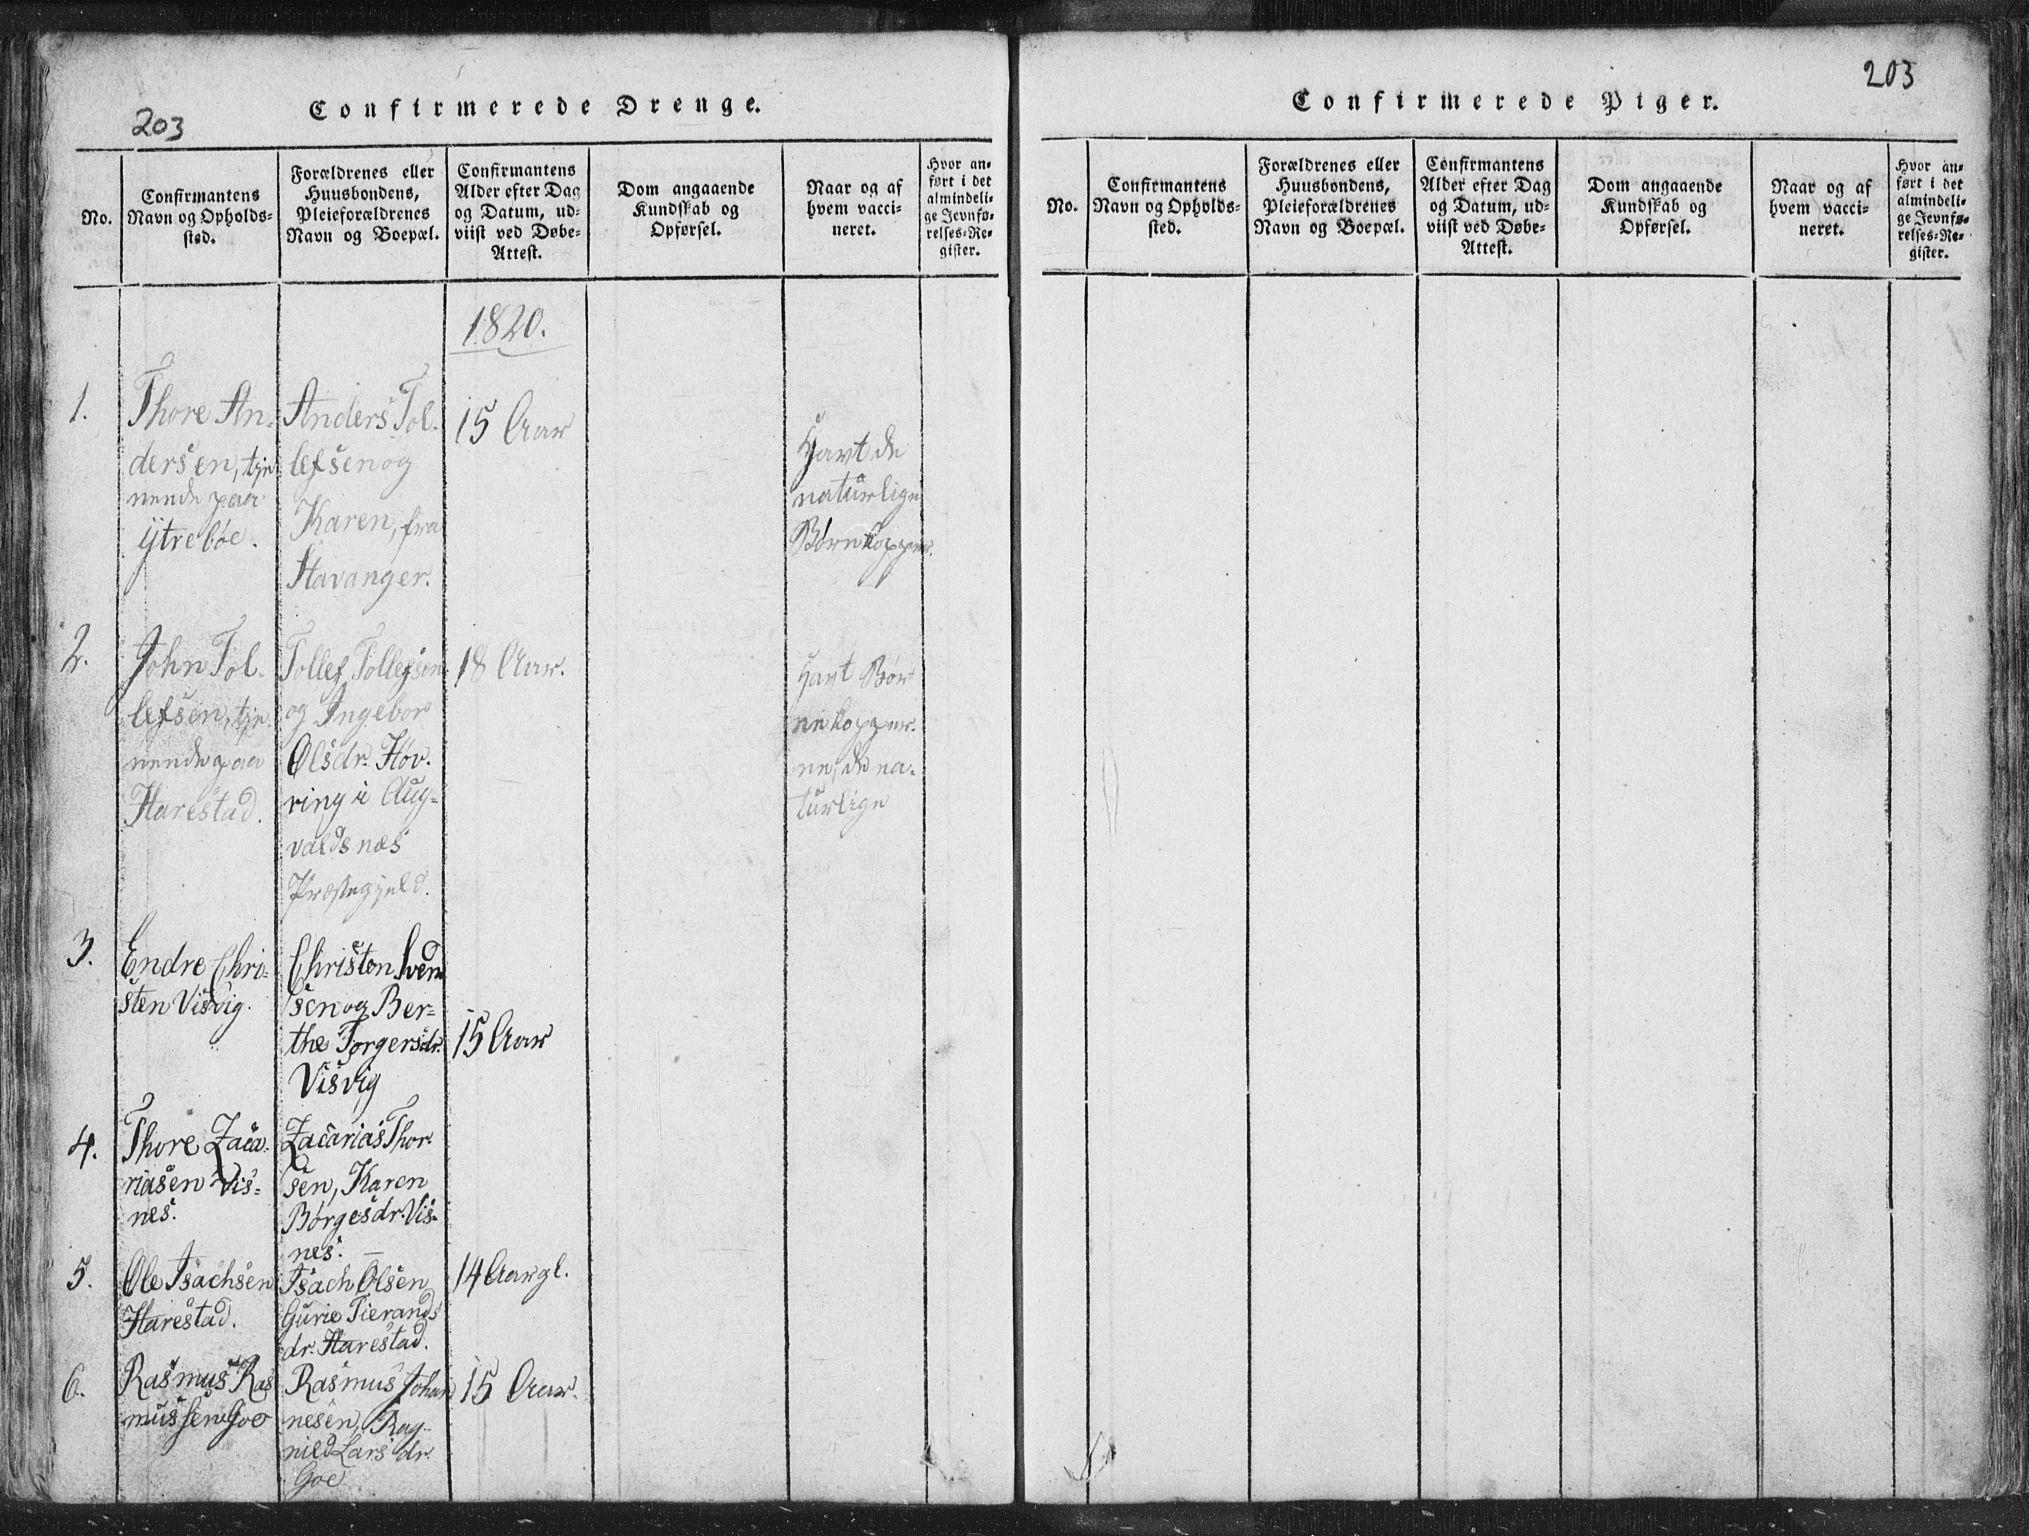 203
Confirmerede Drenge.
No.
Confirmantens
Navn og Opholds-
sted.
Forældrenes eller
Huusbondens,
Pleieforældrenes
Navn og Boepæl.
Confirmantens
Alder efter Dag
og Datum, ud-
viist ved Døbe-
Attest.
Dom angaaende
Kundskab og
Opførsel.
Naar og af
hvem vacci-
neret.
Hvor an-
ført i det
almindeli-
ge Jevnfø-
relses-Re-
gister.
1820.
1.
Thore An-
dersen, tje
nende paa
Ytrebøe.
Anders Tol-
lefsen og
Karen, fra
Stavanger.
15 Aar
Havt de
naturlige
Børnekopper.
2.
John Tol-
lefsen, tje
nende paa
Harestad.
Tollef Tollefsen
og Ingebor
Olsdr. Høv-
ring i Aug-
valdsnæs
Præstegjeld.
18 Aar.
Havt Bør
nekopper-
ne, de na-
turlige
3.
Endre Chri-
sten Visvig.
Christen Sven
sen og Ber-
the Torgersdr.
Visvig
15 Aar
4.
Thore Zaca-
riasen Vis-
nes.
Zacarias Thor-
sen, Karen
Børgesdr. Vis-
nes.
5.
Ole Isachsen
Harestad.
Isach Olsen
Gurie Tierands
dr. Harestad.
14 Aar gl.
6.
Rasmus Ras
mussen Goe
Rasmus Johan
nesen, Rag-
nild Lars dr.
Goe
15 Aar.
203
Confirmerede Piger.
No.
Confirmantens
Navn og Opholds-
sted.
Forældrenes eller
Huusbondens,
Pleieforældrenes
Navn og Boepæl.
Confirmantens
Alder efter Dag
og Datum, ud-
viist ved Døbe-
Attest.
Dom angaaende
Kundskab og
Opførsel.
Naar og af
hvem vacci-
neret.
Hvor an-
ført i det
almindeli-
ge Jevnfø-
relses-Re-
gister.